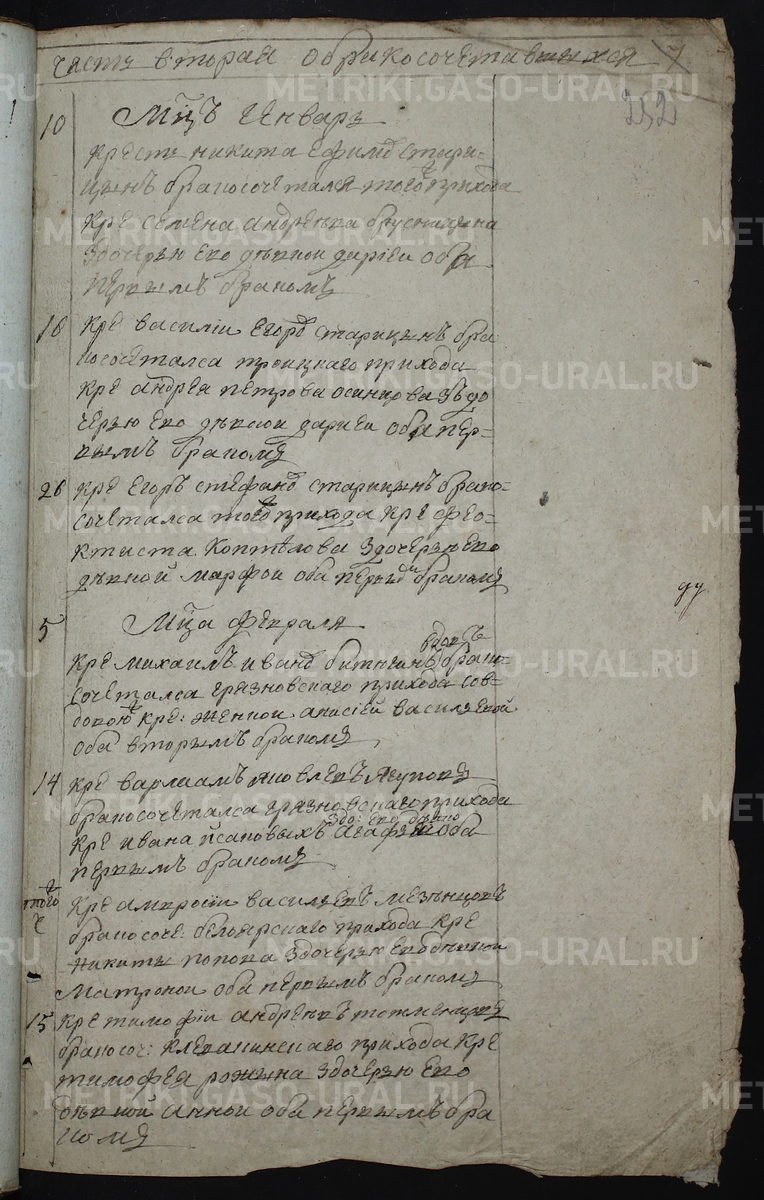 часть вторая о бракосочетавшихся 7
252
10 Мц̃ъ Генварь
крестья никита ефимо старицынъ
цынъ бракосочетался того прихода
кре семена андреева брусницына
здочерью ево девкои дариеи оба
первымъ бракомъ
16 кре василии егоро старицынъ бра
косочеталса троицкаго прихода
кре андрея петрова осинцова здо
черью ево девкои дариеи оба пер-
вымъ бракомъ
26 кре егоръ стефано старицынъ брако-
сочеталса того прихода кре фео-
ктиста коптелова здочерью ево
девкой марфои оба первы бракомъ
5 Мц̃а февраля
вдовъ
кре михаилъ ивано битнинъ брако-
сочеталса грязновскаго прихода сов-
довою кре: женкои анисией василевой
оба вторымъ бракомъ
14 кре варлаамъ яковлевъ
бракосочеталса грязновскаго прихода
здо: ево девкою
кре ивана исаковыхъ агафею оба
первымъ бракомъ
того ч
кре амвросии василевъ мезенцовъ
бракосоче: белоярскаго прихода кре
никиты попова здочерью ево девкои
матроной оба первымъ бракомъ
15 кре тимофіи андреевъ
бракосоч: клевакинскаго прихода кре
тимофея рожина здочерью ево
девкной анной оба первымъ бра
комъ
METRIKI.GASO-URAL.RU